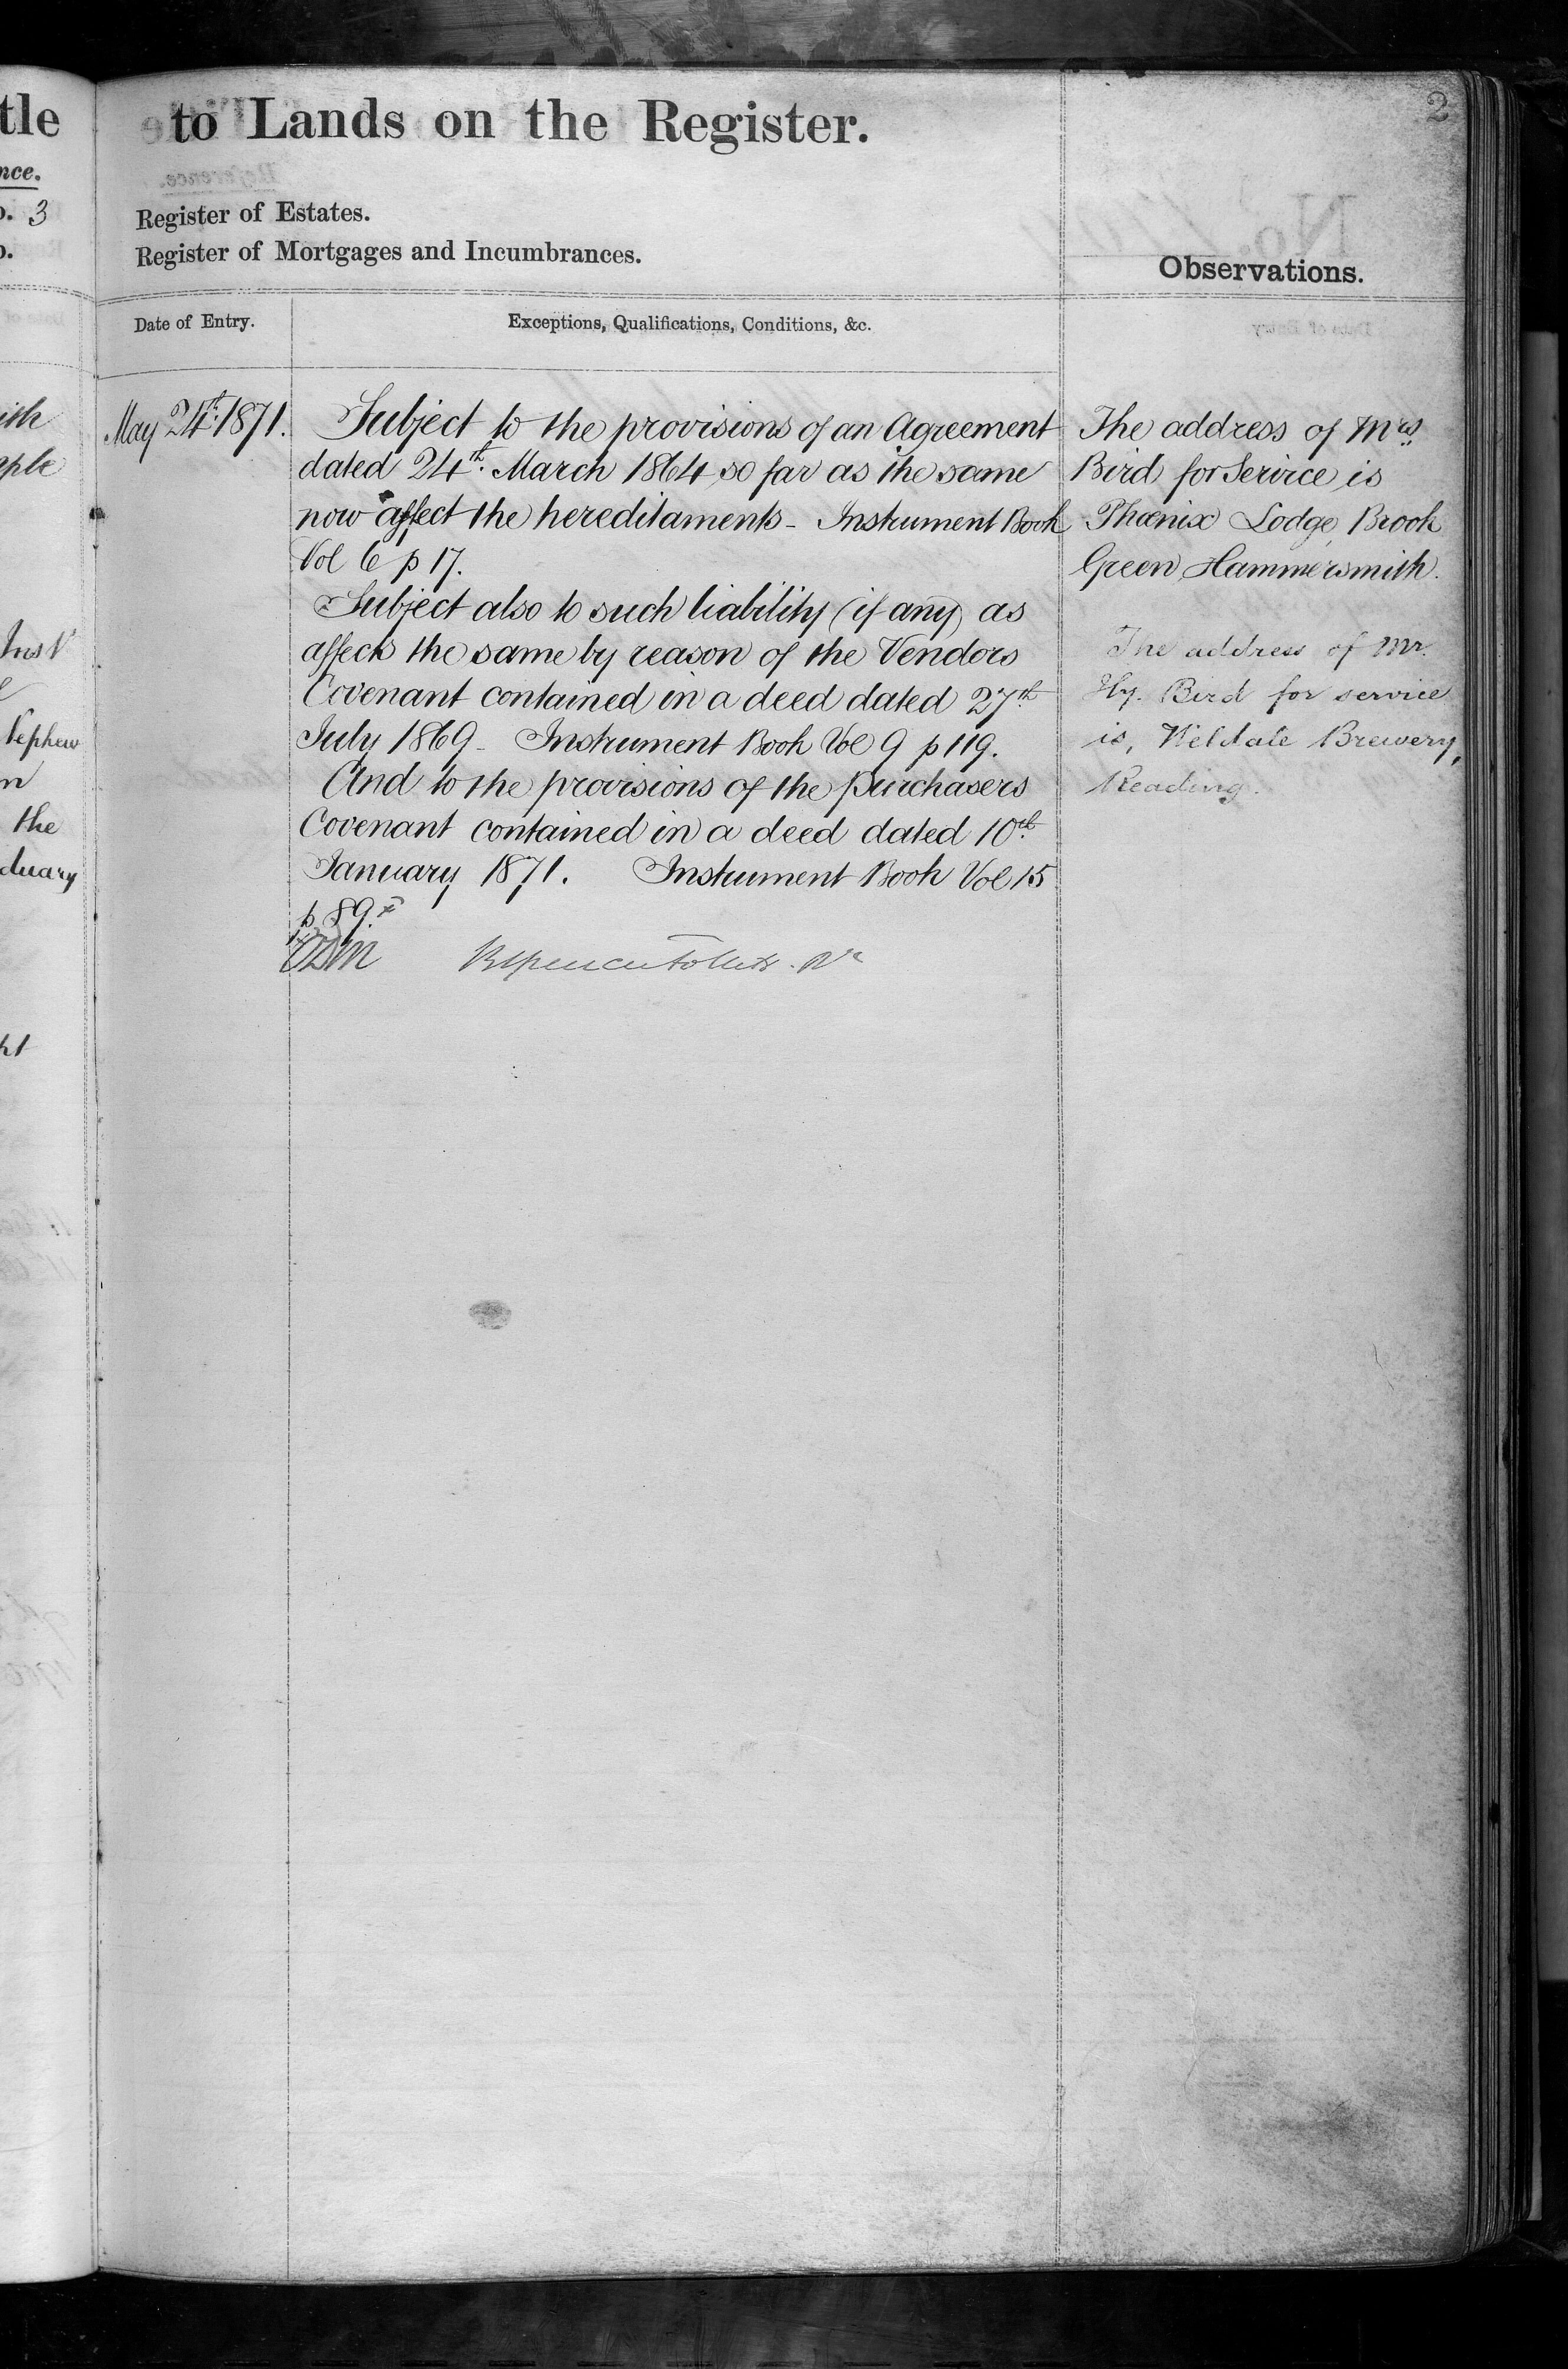 tle
nce.
o. 3
o.
Nephew
the
2
to Lands on the Register.
Register of Estates.
Register of Mortgages and Incumbrances.
Observations.
Date of Entry.
Exceptions, Qualifications, Conditions, &c.
May 24th. 1871.
Subject to the provisions of an Agreement
dated 24th. March 1864 so far as the same
now affect the hereditaments - Instrument Book
Vol 6 p 17.
Subject also to such liability (if any) as
affects the same by reason of the Vendors
Covenant contained in a deed dated 27th
July 1869 - Instrument Book Vol 9 p 119.
And to the provisions of the purchasers
Covenant contained in a deed dated 10th
January 1871. Instrument Book Vol 15
p 89.
The address of Mrs.
Bird for Service is
Phœnix Lodge, Brook
Green Hammersmith.
The address of Mr.
Hy. Bird for service
is, Brewery,
Reading.